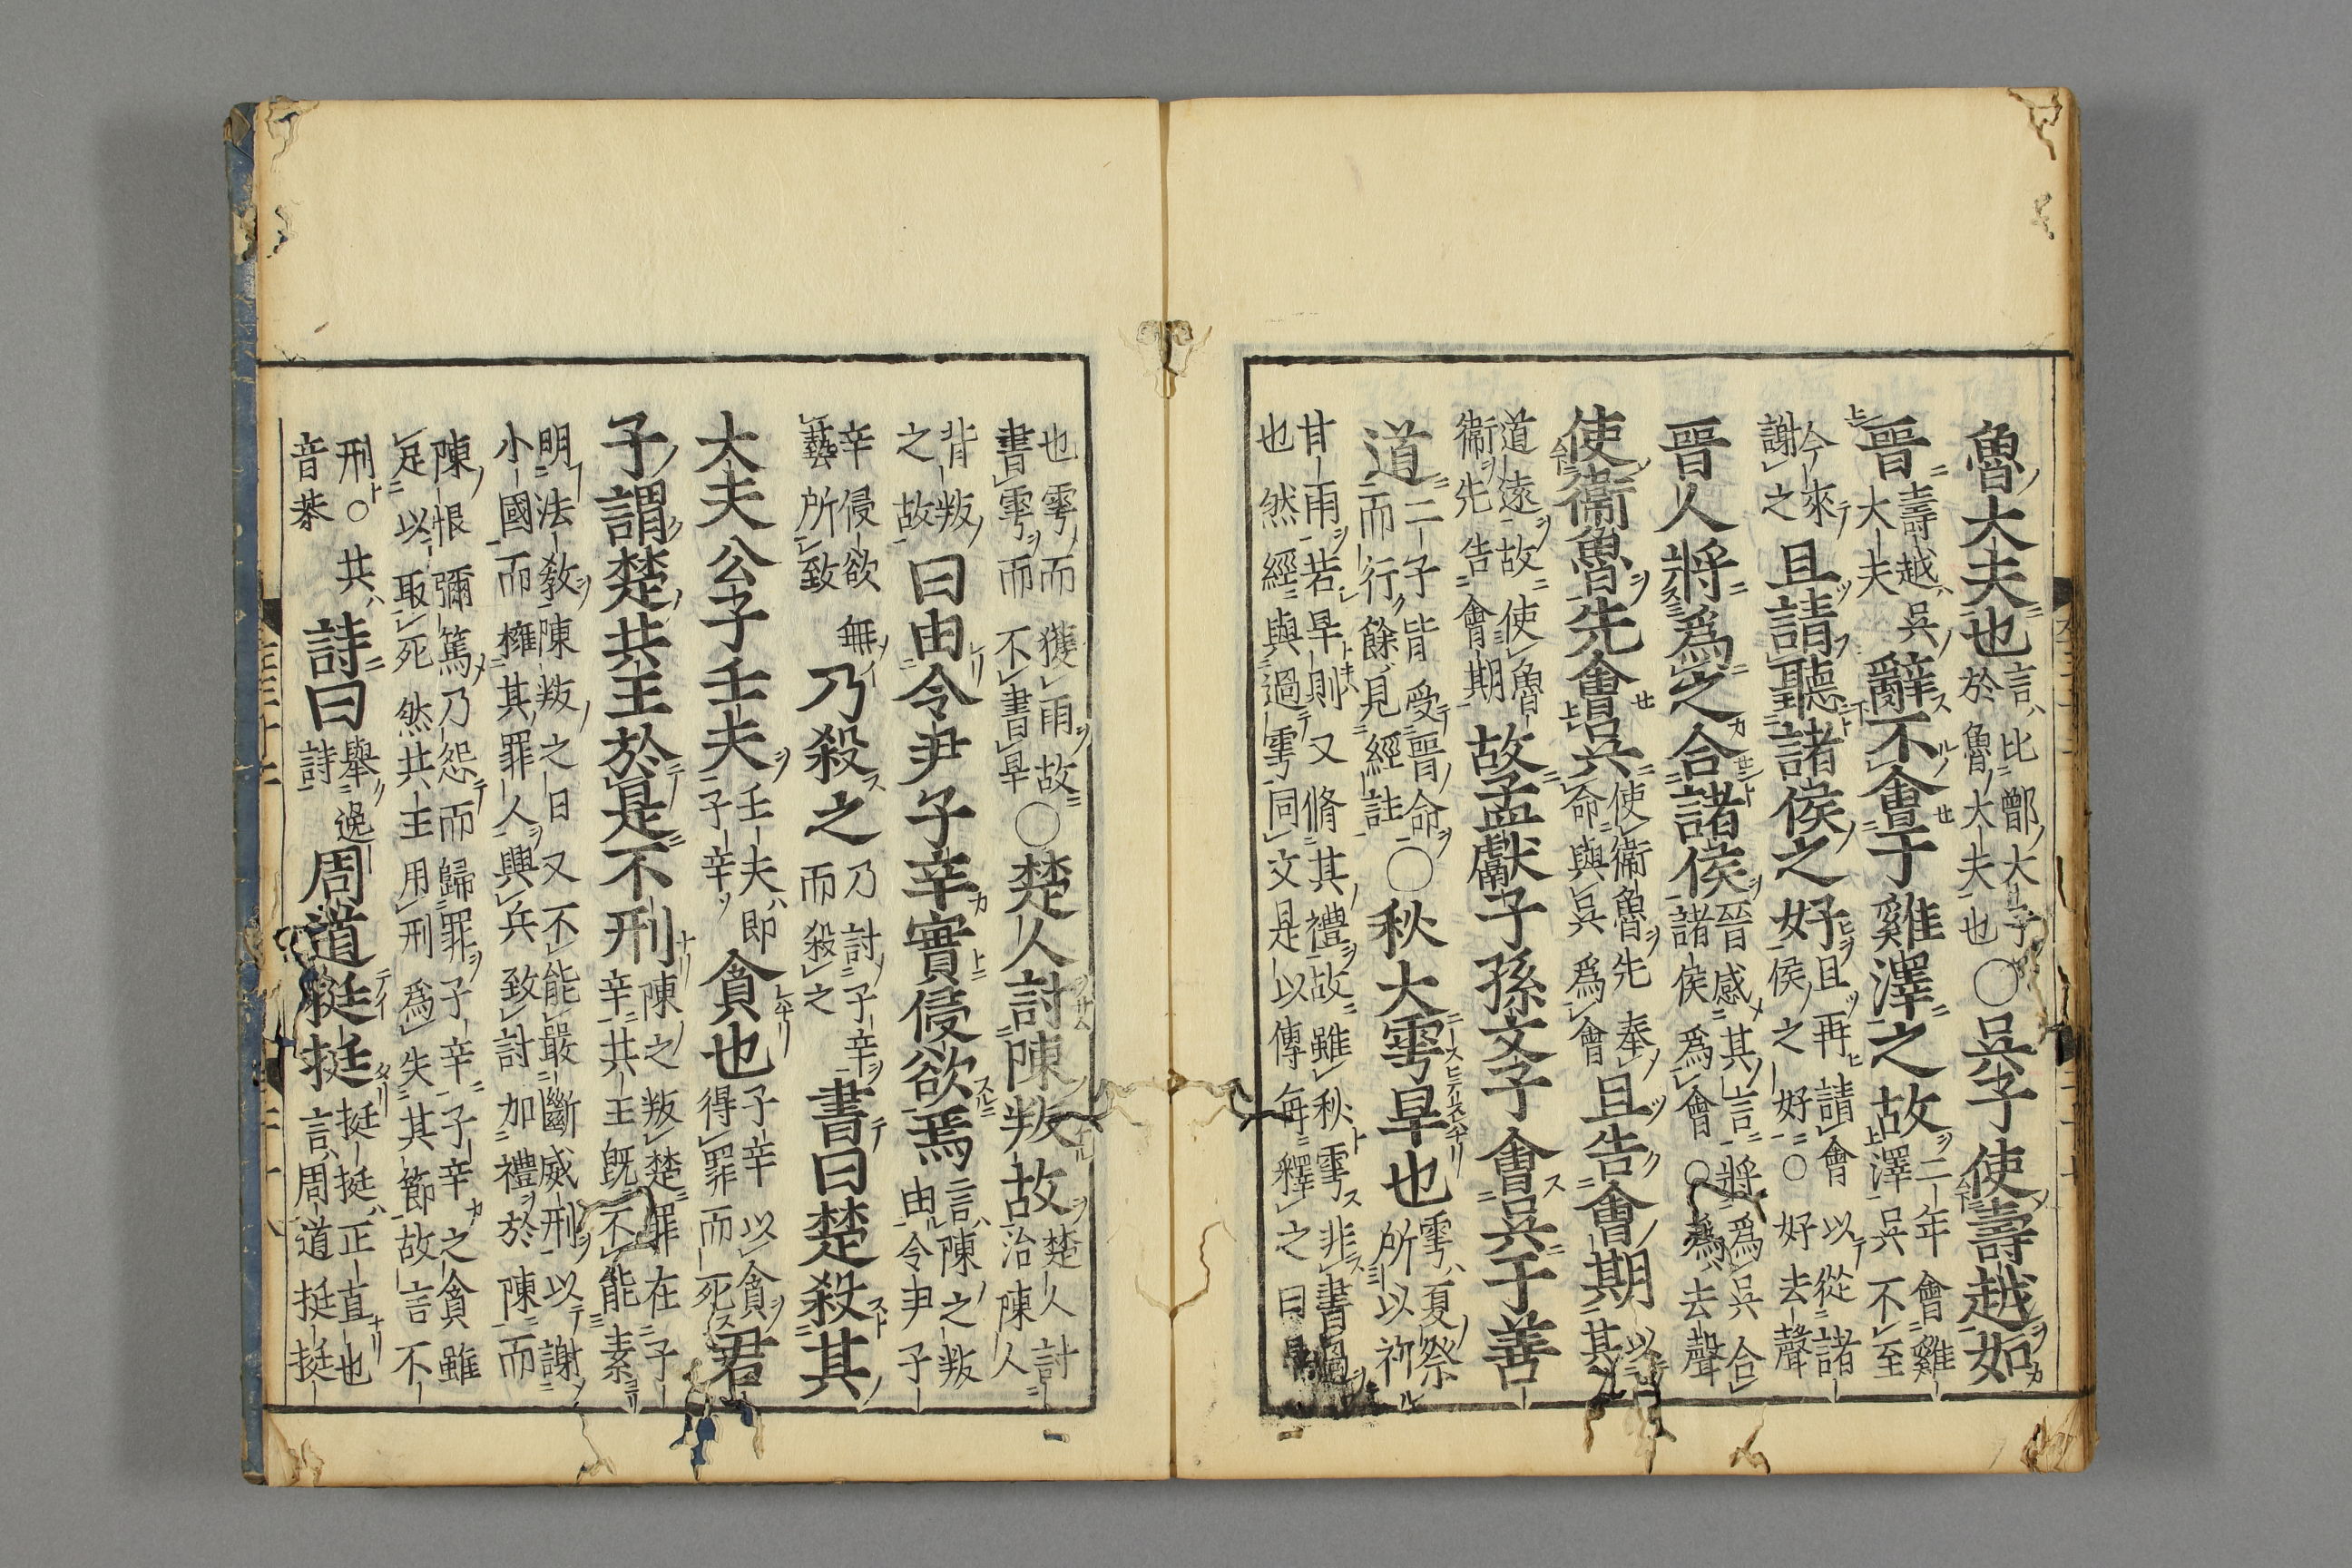 魯大夫也言比鄫大子於魯大夫也○吳子使壽越如
晉壽越吳大夫辭不會于雞澤之故二年會雞澤吳不至
今來謝之且請聽諸侯之好且再請會以從諸侯之好○好去聲
晉人將爲之合諸侯晉感其言將爲吳合諸侯爲會○爲去聲
使衞魯先會吳使衞魯先奉命與吳爲會且告會期以
道遠故使魯衞先告會期故孟獻子孫文子會吳于善
道二子皆受晉命而行餘見經註○秋大雩旱也雩夏祭所以祈
甘雨若旱則又脩其禮故雖秋雩非書過也然經與過雩同文是以傳每釋之曰旱
也雩而獲雨故書雩而不書旱○楚人討陳叛故楚人討治陳人
背叛之故曰由令尹子辛實侵欲焉言陳之叛由令尹子
辛侵欲無藝所致乃殺之乃討子辛而殺之書曰楚殺其
大夫公子壬夫壬夫即子辛貪也子辛以貪得罪而死君
子謂楚共王於是不刑陳之叛楚罪在子辛共王既不能素
明法教陳叛之日又不能嚴斷威刑以謝小國而擁其罪人興兵致討加禮於陳而
陳恨彌篤乃怨而歸罪子辛子辛之貪雖足以取死然共王用刑爲失其節故言不
刑○共音恭詩曰舉逸詩周道挺挺挺挺正直也言周道挺挺